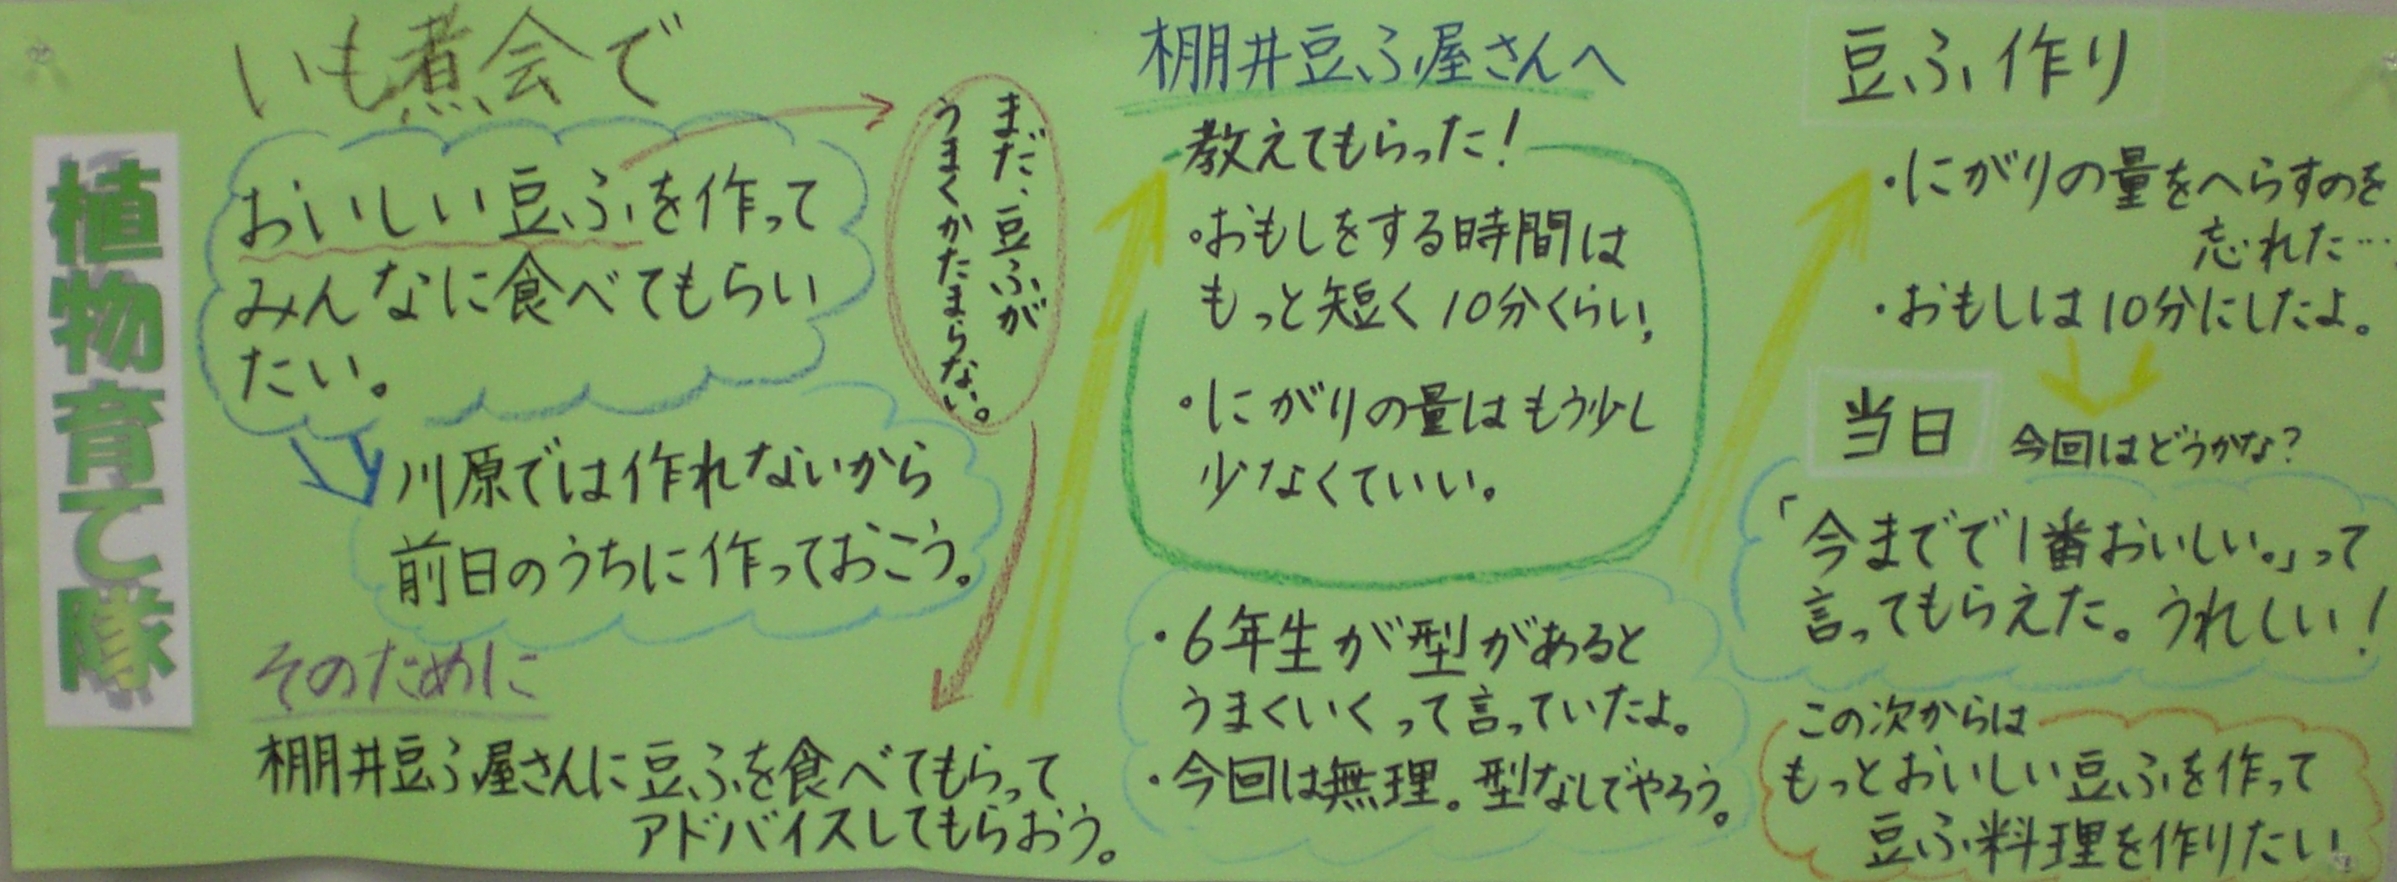 植物育て隊
いも煮会で
おいしい豆ふを作って
みんなに食べてもらい
たい。
まだ、豆ふが
うまくかたまらない。
川原では作れないから
前日のうちに作っておこう。
そのために
棚井豆ふ屋さんに豆ふを食べてもらって
アドバイスしてもらおう。
棚井豆ふ屋さんへ
教えてもらった！
・おもしをする時間は
もっと短く10分くらい、
・にがりの量はもう少し
少なくていい。
・6年生が型があると
うまくいくって言っていたよ。
・今回は無理。型なしでやろう。
豆ふ作り
・にがりの量をへらすのを
忘れた…
・おもしは10分にしたよ。
当日
今回はどうかな？
「今までで1番おいしい。」って
言ってもらえた。うれしい！
この次からは
もっとおいしい豆ふを作って
豆ふ料理を作りたい